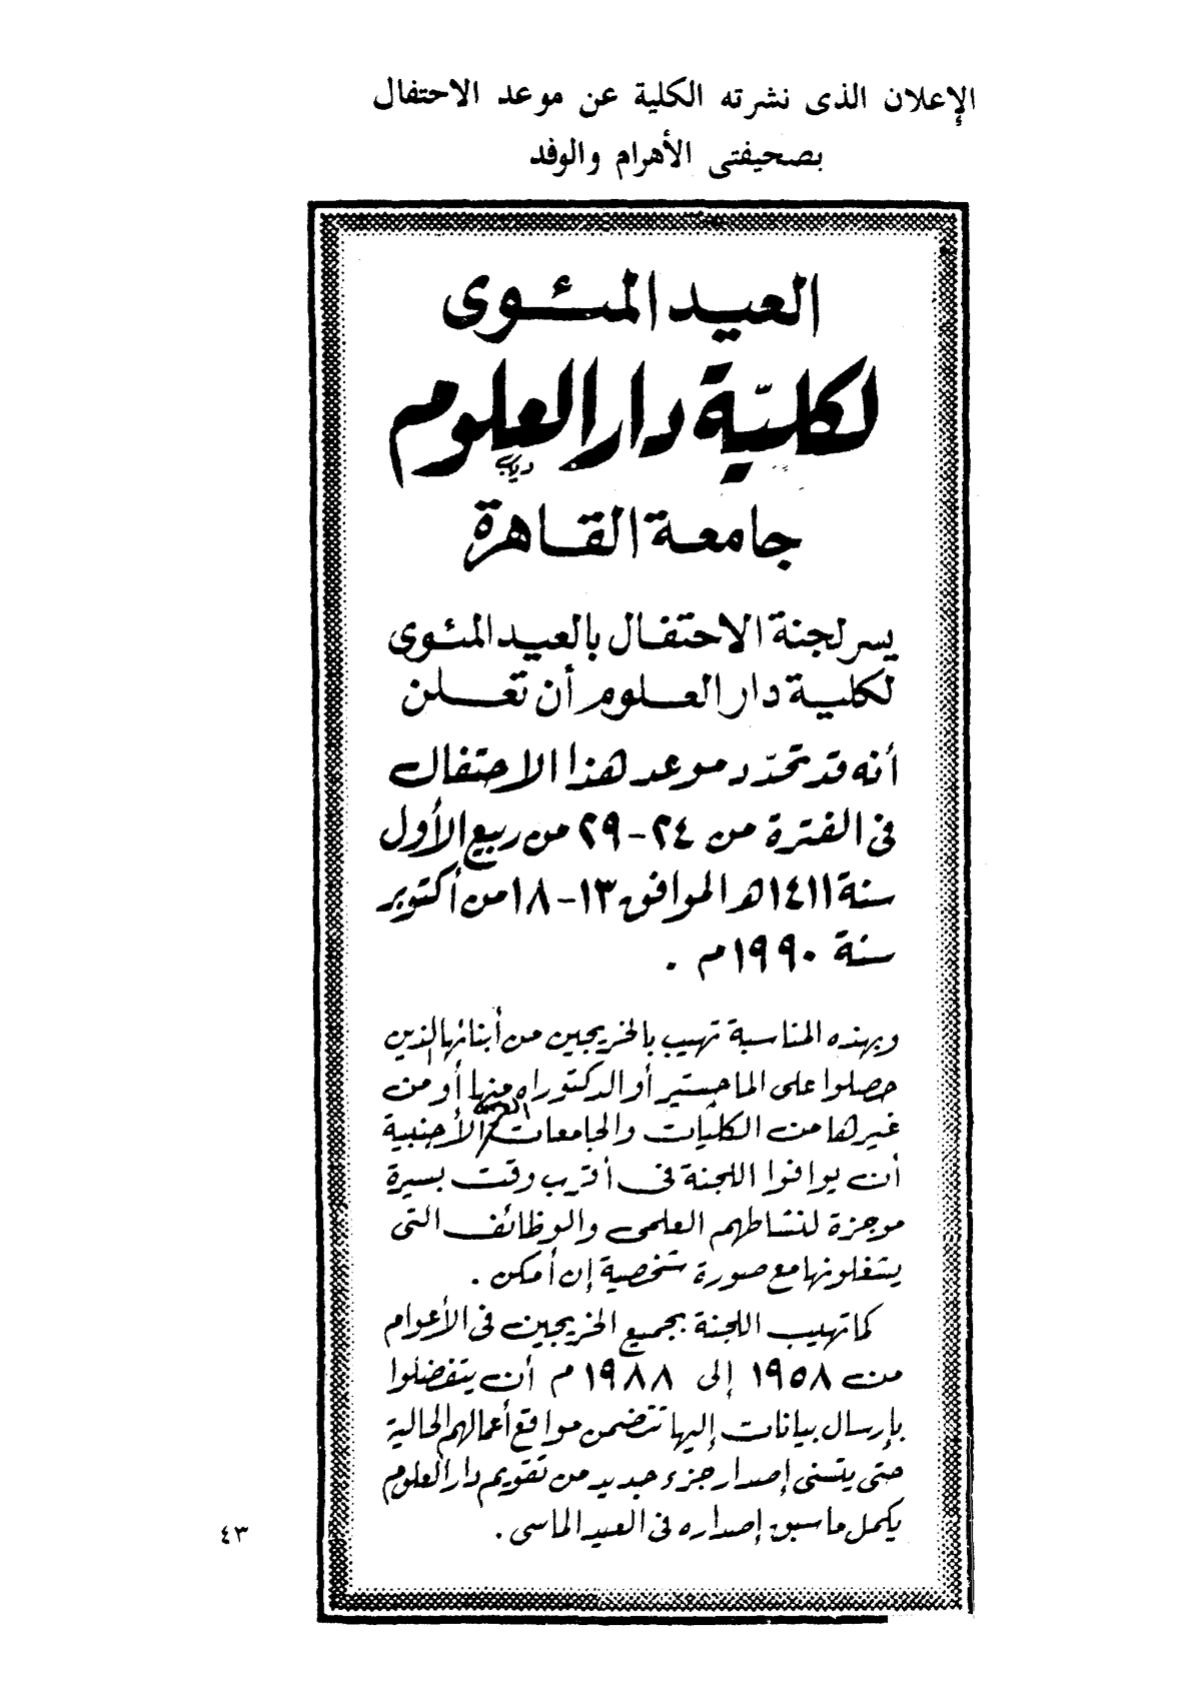 الإعلان الذى نشرته الكلية عن موعد الاحتفال
بصحيفتى الأهرام والوفد
العيد المئوى
لكليّة دار العلوم
دياب
جامعة القاهرة
يسر لجنة الاحتفال بالعيد المئوى
لكلية دار العلوم أن تعلن
أنه قد تحدّد موعد هذا الاحتفال
فى الفترة من ٢٤-٢٩ من ربيع الأول
سنة ١٤١١ه الموافق ١٣-١٨ من أكتوبر
سنة ١٩٩٠م .
وبهذه المناسبة تهيب بالخريجين من أبنائها الذين
حصلوا على الماجستير أو الدكتوراه منها أو من
غيرها من الكليات والجامعات الأجنبية
أن يوافوا اللجنة فى أقرب وقت بسيرة
موجزة لنشاطهم العلمى والوظائف التى
يشغلونها مع صورة شخصية إن أمكن .
كما تهيب اللجنة بجميع الخريجين فى الأعوام
من ١٩٥٨ إلى ١٩٨٨ م أن يتفضلوا
بإرسال بيانات إليها تتضمن مواقع أعمالهم الحالية
حتى يتسنى إصدار جزء جديد من تقويم دار العلوم
يكمل ما سبق إصداره فى العيد الماسى .
٤٣